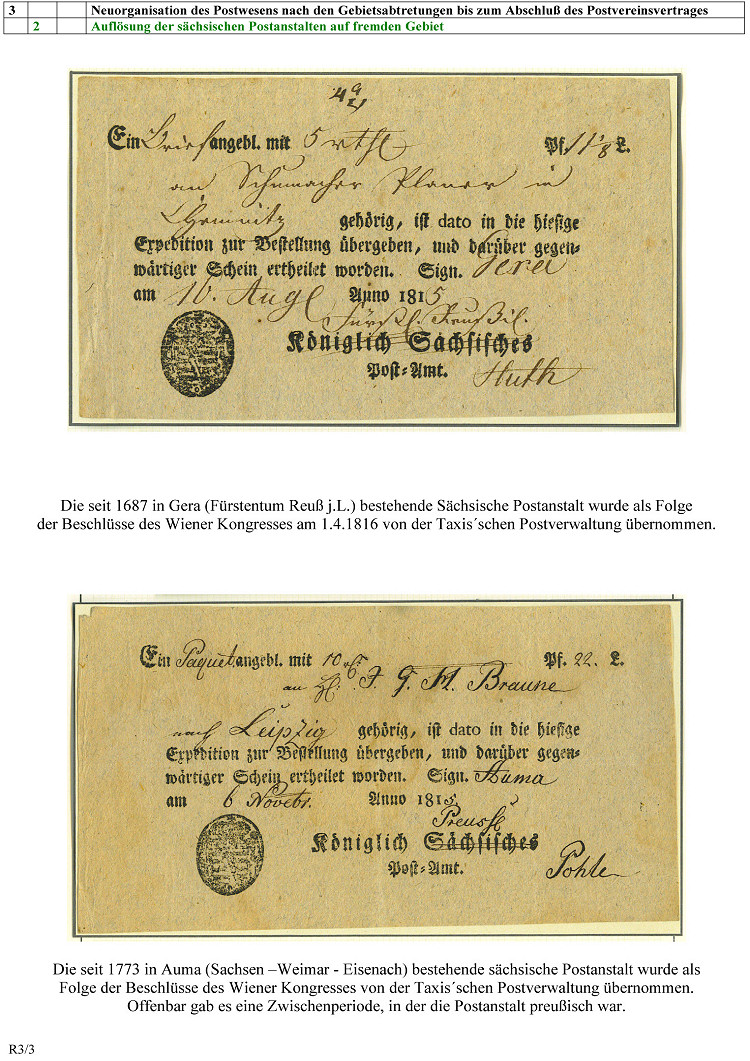 3 Neuorganisation des Postwesens nach den Gebietsabtretungen bis zum Abschluß des Postvereinsvertrages
2 Auflösung der sächsischen Postanstalten auf fremden Gebiet
Ein Brief angebl. mit 5 rthl Pf. 11 1/8 L.
an Schumacher Planer in
Chemnitz gehörig, ist dato in die hiesige
Expedition zur Bestellung übergeben, und darüber gegen-
wärtiger Schein ertheilet worden. Sign. Gera
am 10. Augl Anno 1815
Fürstl. Reußil.
Königlich Sächsisches
Post-Amt. Huth
Die seit 1687 in Gera (Fürstentum Reuß j.L.) bestehende Sächsische Postanstalt wurde als Folge
der Beschlüsse des Wiener Kongresses am 1.4.1816 von der Taxis´schen Postverwaltung übernommen.
Ein Paquet angebl. mit 10 Pf. 22. L.
an J. G. M. Braune
nach Leipzig gehörig, ist dato in die hiesige
Expedition zur Bestellung übergeben, und darüber gegen-
wärtiger Schein ertheilet worden. Sign. Auma
am 6 Novebr. Anno 1815.
Preussl
Königlich Sächsisches
Post-Amt. Pohle
Die seit 1773 in Auma (Sachsen –Weimar - Eisenach) bestehende sächsische Postanstalt wurde als
Folge der Beschlüsse des Wiener Kongresses von der Taxis´schen Postverwaltung übernommen.
Offenbar gab es eine Zwischenperiode, in der die Postanstalt preußisch war.
R3/3